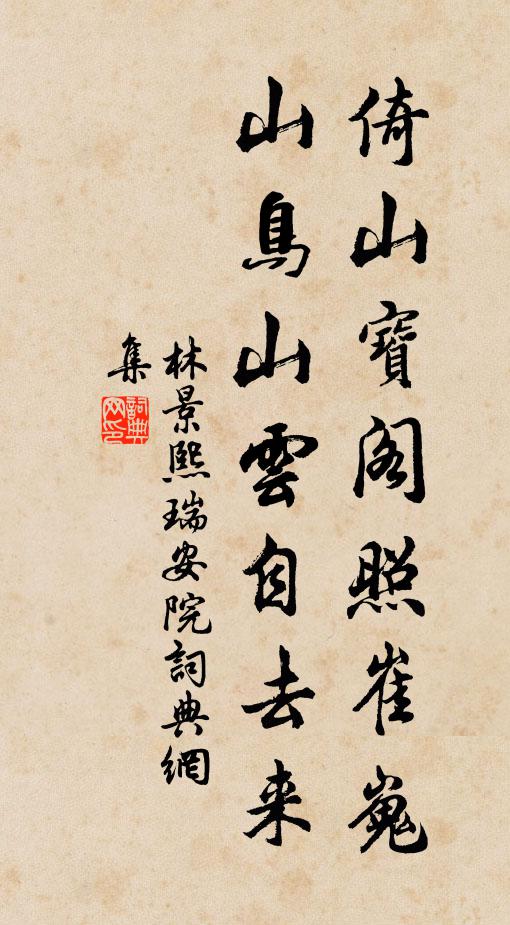 倚山寶阁照崔嵬
山鳥山雲自去来
林景熙瑞安院詞典網
集
詞典网印